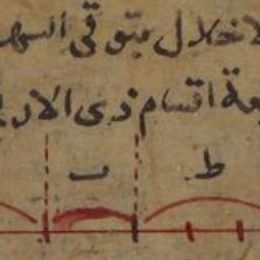 الاخلال بتوقى السهـ
ـعة اقسام ذى الار
ٮ ط